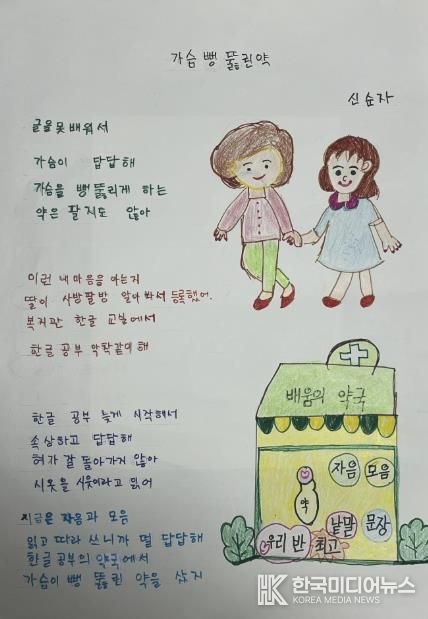 가슴 뻥 뚫린 약
신순자
글을 못 배워서
가슴이 답답해
가슴을 뻥 뚫리게 하는
약은 팔지도 않아
이런 내 마음을 아는지
딸이 사방팔방 알아봐서 등록했어.
복지관 한글 교실에서
한글 공부 악착같이 해
한글 공부 늦게 시작해서
속상하고 답답해
혀가 잘 돌아가지 않아
시옷을 시읏이라고 읽어
지금은 자음과 모음
읽고 따라 쓰니까 덜 답답해
한글 공부의 약국에서
가슴이 뻥 뚫린 약을 샀지
배움의 약국
자음 모음
약
낱말 문장
우리 반 최고
HK 한국미디어뉴스
KOREA MEDIA NEWS